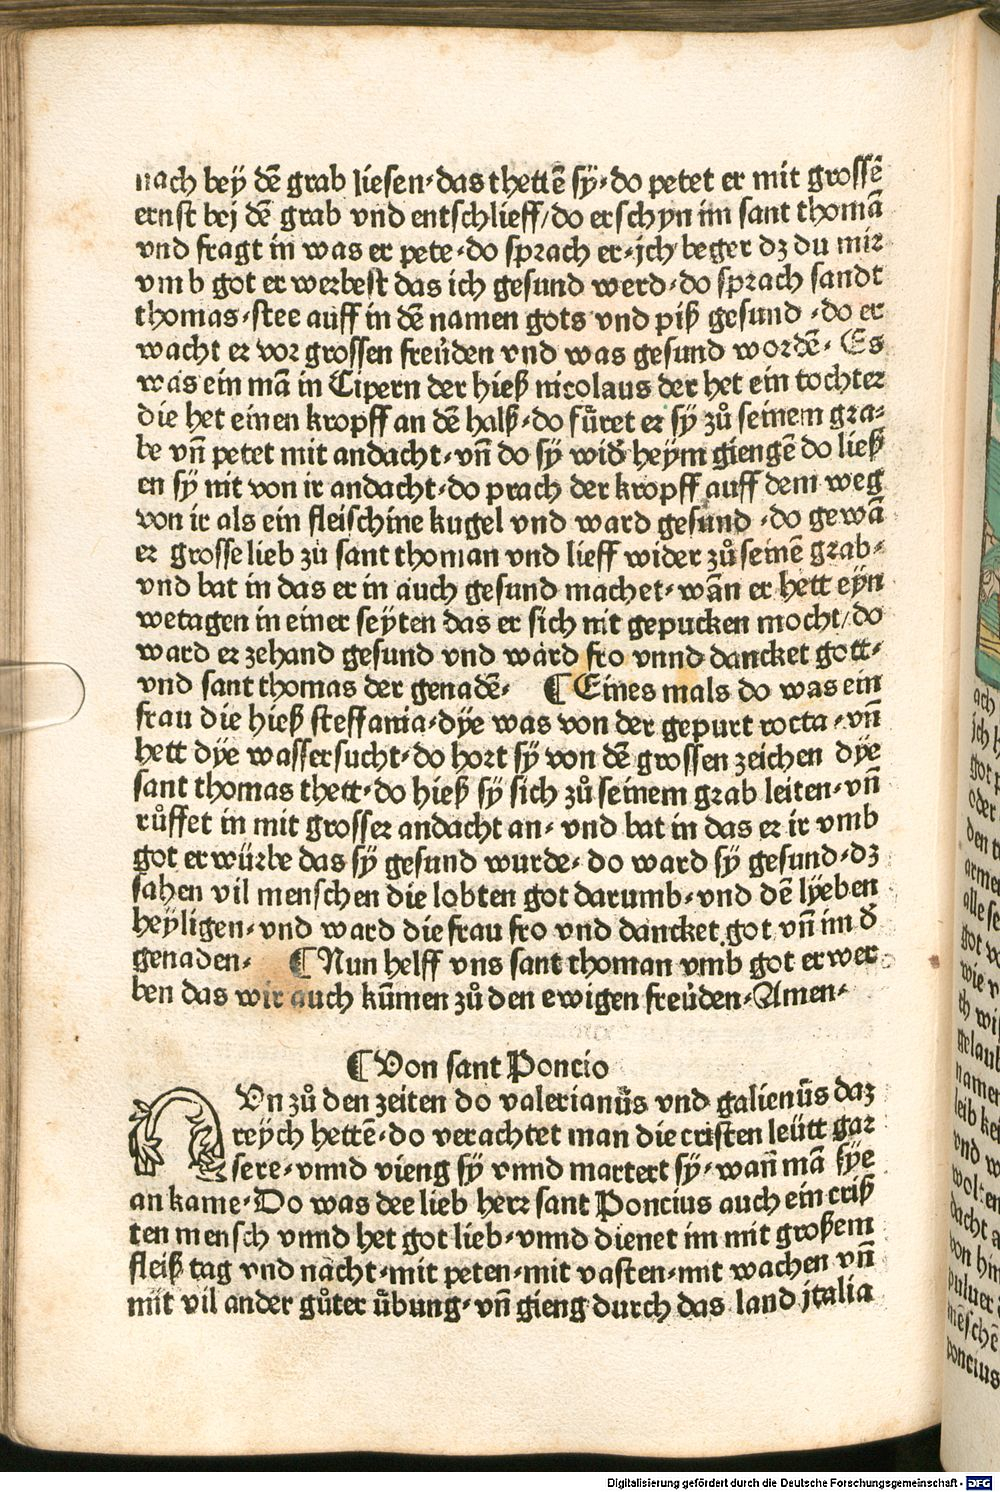 nach bey dē grab liesen·das thettē sy·do petet er mit grossē
ernst bej dē grab vnd entschlieff/do erschyn im sant thomā
vnd fragt in was er pete·do sprach er·jch beger dz du mir
vmb got er werbest das ich gesund werd·do sprach sandt
thomas·stee auff in dē namen gots vnd piß gesund ·do er
wacht er vor grossen freüden vnd was gesund wordē· Es
was ein mā in Cipern der hieß nicolaus der het ein tochter
die het einen kropff an dē halß·do fůret er sy zů seinem gra⸗
be vn̄ petet mit andacht·vn̄ do sy wid̄ heym giengē do ließ
en sy nit von ir andacht·do prach der kropff auff dem weg
von ir als ein fleischine kugel vnd ward gesund ·do gewā
er grosse lieb zu sant thoman vnd lieff wider zů seinē grab·
vnd bat in das er in auch gesund machet·wān er hett eyn
wetagen in einer seyten das er sich nit gepucken mocht/do
ward er zehand gesund vnd ward fro vnnd dancket gott·
vnd sant thomas der genadē· ¶Eines mals do was ein
frau die hieß steffania·dÿe was von der gepurt rocta·vn̄
hett dÿe wassersucht·do hort sÿ von dē grossen zeichen dÿe
sant thomas thett·do hieß sÿ sich zů seinem grab leiten·vn̄
růffet in mit grosser andacht an· vnd bat in das er ir vmb
got erwürbe das sÿ gesund wurde· do ward sÿ gesund·dz
sahen vil menschen die lobten got darumb·vnd dē lÿeben
heÿligen·vnd ward die frau fro vnd dancket got vn̄ im d̄
genaden· ¶Nun helff vns sant thoman vmb got erwer
ben das wir auch kūmen zů den ewigen freüden·Amen·
¶Von sant Poncio
Vn zů den zeiten do valerianūs vnd galienūs daz
reÿch hettē·do verachtet man die cristen leütt gar
sere·vnnd vieng sÿ vnnd martert sÿ·wan̄ mā sÿe
an kame·Do was dee lieb herr sant Poncius auch ein criß
ten mensch vnnd het got lieb·vnnd dienet im mit großem
fleiß tag vnd nacht·mit peten·mit vasten·mit wachen vn̄
mit vil ander gůter übung·vn̄ gieng durch das land jtalia
Digitalisierung gefördert durch die Deutsche Forschungsgemeinschaft - DFG